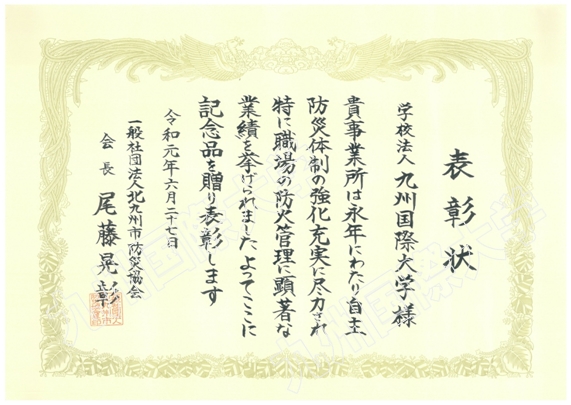 表彰状
学校法人 九州国際大学 様
貴事業所は永年にわたり自主
防災体制の強化充実に尽力され
特に職場の防火管理に顕著な
業績を挙げられました よってここに
記念品を贈り表彰します
令和元年六月二十七日
一般社団法人北九州市防災協会
会長 尾藤晃彰
九州国際大学
九州国際大学